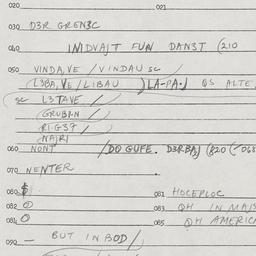 020 021
030 D3R GREN3C
040 INDVAJT FUN DAN3T (210
050 VINDA, VE / VINDAU sc
L3BA, VE / LIBAU )LA-PA.) QS ALTE
sc L3TAVE /
GRUBAN /
RIG37 /
NAJRI
060 NONT / DO GUFE. D3RBAJ (820 (-068
070 NENTER
080 081 HOCEPLOC
082 083 QH IN MAJS
084 085 QH AMERICA
090 — BUT IN BOD /